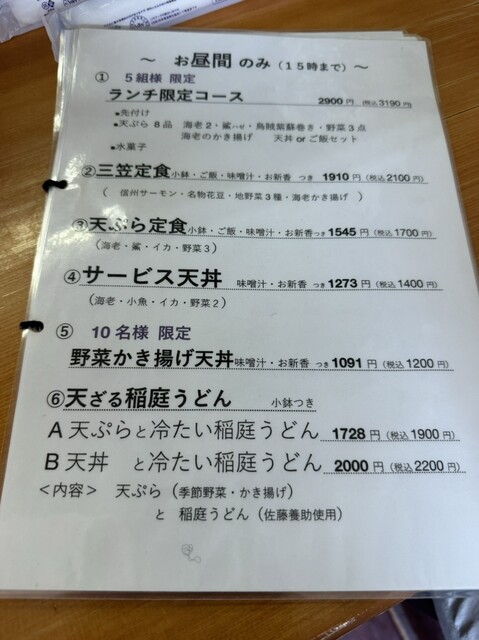 ～ お昼間 のみ（１５時まで）～
① ５組様 限定
ランチ限定コース 2900 円 (税込3190 円)
■先付け
■天ぷら ８品 海老２・鯊ハゼ・烏賊紫蘇巻き・野菜３点
海老のかき揚げ 天丼 or ご飯セット
■水菓子
②三笠定食 小鉢・ご飯・味噌汁・お新香 つき 1910 円（税込2100 円）
（ 信州サーモン・名物花豆・地野菜３種・海老かき揚げ ）
③天ぷら定食 小鉢・ご飯・味噌汁・お新香つき 1545 円（税込 1700 円）
（海老・鯊・イカ・野菜３）
④サービス天丼 味噌汁・お新香 つき 1273 円（税込 1400 円）
（海老・小魚・イカ・野菜２）
⑤ 10 名様 限定
野菜かき揚げ天丼 味噌汁・お新香 つき 1091 円（税込 1200 円）
⑥天ざる稲庭うどん 小鉢つき
A 天ぷらと冷たい稲庭うどん 1728 円（税込 1900 円）
B 天丼 と冷たい稲庭うどん 2000 円（税込 2200 円）
＜内容＞ 天ぷら（季節野菜・かき揚げ）
と 稲庭うどん（佐藤養助使用）